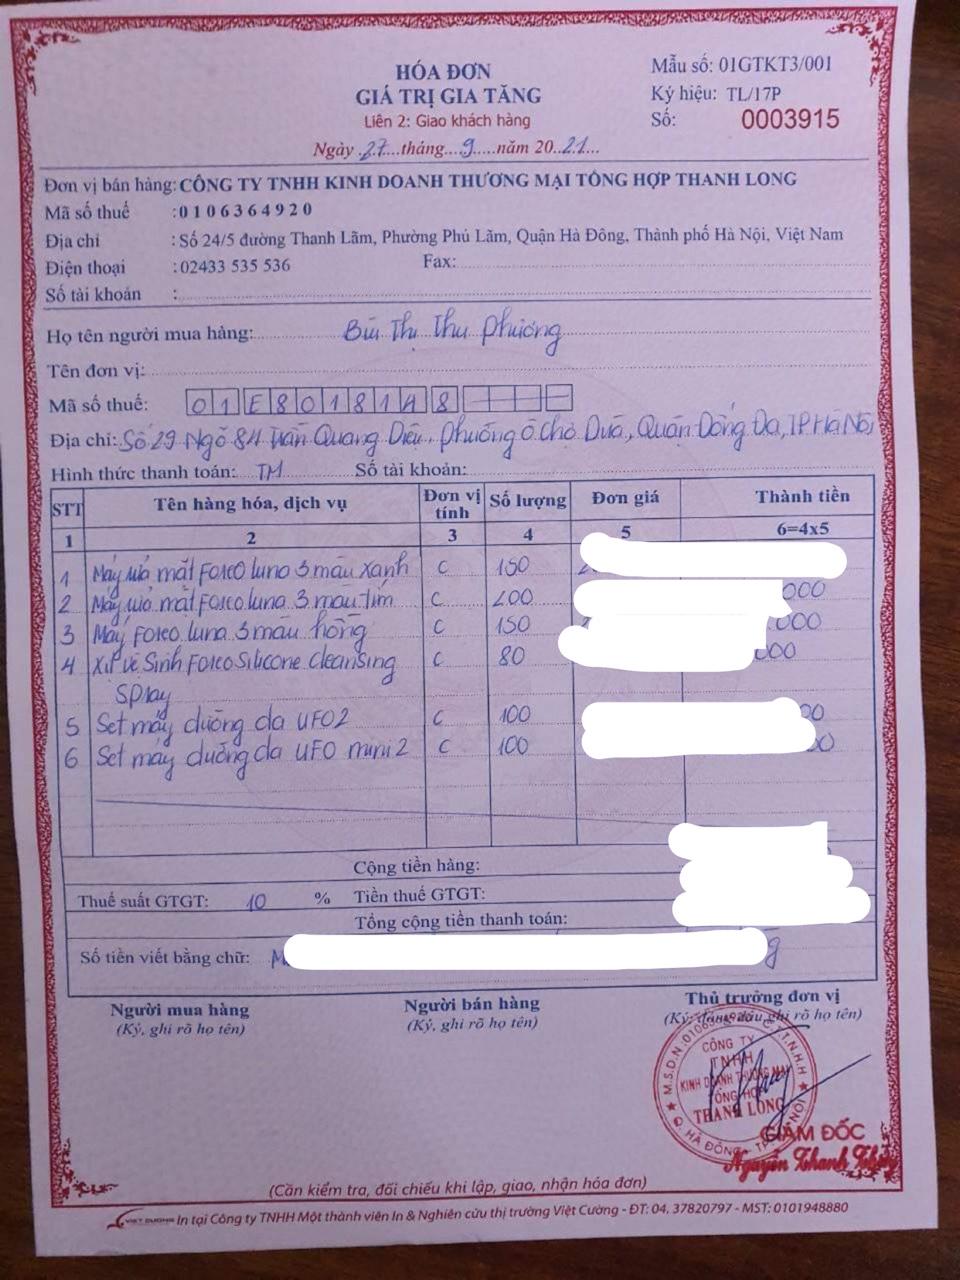 HÓA ĐƠN
GIÁ TRỊ GIA TĂNG
Liên 2: Giao khách hàng
Ngày 27 tháng 9 năm 2021
Mẫu số: 01GTKT3/001
Ký hiệu: TL/17P
Số: 0003915
Đơn vị bán hàng: CÔNG TY TNHH KINH DOANH THƯƠNG MẠI TỔNG HỢP THANH LONG
Mã số thuế : 0106364920
Địa chỉ : Số 24/5 đường Thanh Lãm, Phường Phú Lãm, Quận Hà Đông, Thành phố Hà Nội, Việt Nam
Điện thoại : 02433 535 536 Fax:
Số tài khoản :
Họ tên người mua hàng: Bùi Thị Thu Phương
Tên đơn vị:
Mã số thuế: 01E8018148
Địa chỉ: Số 29 Ngõ 84 Trần Quang Diệu, Phường Ô Chợ Dừa, Quận Đống Đa, TP Hà Nội
Hình thức thanh toán: TM Số tài khoản:
STT Tên hàng hóa, dịch vụ Đơn vị tính Số lượng Đơn giá Thành tiền
1 2 3 4 5 6=4x5
1 Máy rửa mặt Foreo luna 3 màu xanh C 150
2 Máy rửa mặt Foreo luna 3 màu tím C 200 000
3 Máy Foreo luna 3 màu hồng C 150 000
4 Xịt vệ Sinh Foreo Silicone Cleansing C 80 000
Spray
5 Set máy dưỡng da UFO 2 C 100 00
6 Set máy dưỡng da UFO mini 2 C 100 00
Cộng tiền hàng:
Thuế suất GTGT: 10 % Tiền thuế GTGT:
Tổng cộng tiền thanh toán:
Số tiền viết bằng chữ: M
Người mua hàng Người bán hàng Thủ trưởng đơn vị
(Ký, ghi rõ họ tên) (Ký, ghi rõ họ tên) (Ký, đóng dấu, ghi rõ họ tên)
CÔNG TY
TNHH
KINH DOANH THƯƠNG MẠI
TỔNG HỢP
THANH LONG
GIÁM ĐỐC
Nguyễn Thanh
(Cần kiểm tra, đối chiếu khi lập, giao, nhận hóa đơn)
In tại Công ty TNHH Một thành viên In & Nghiên cứu thị trường Việt Cường - ĐT: 04. 37820797 - MST: 0101948880